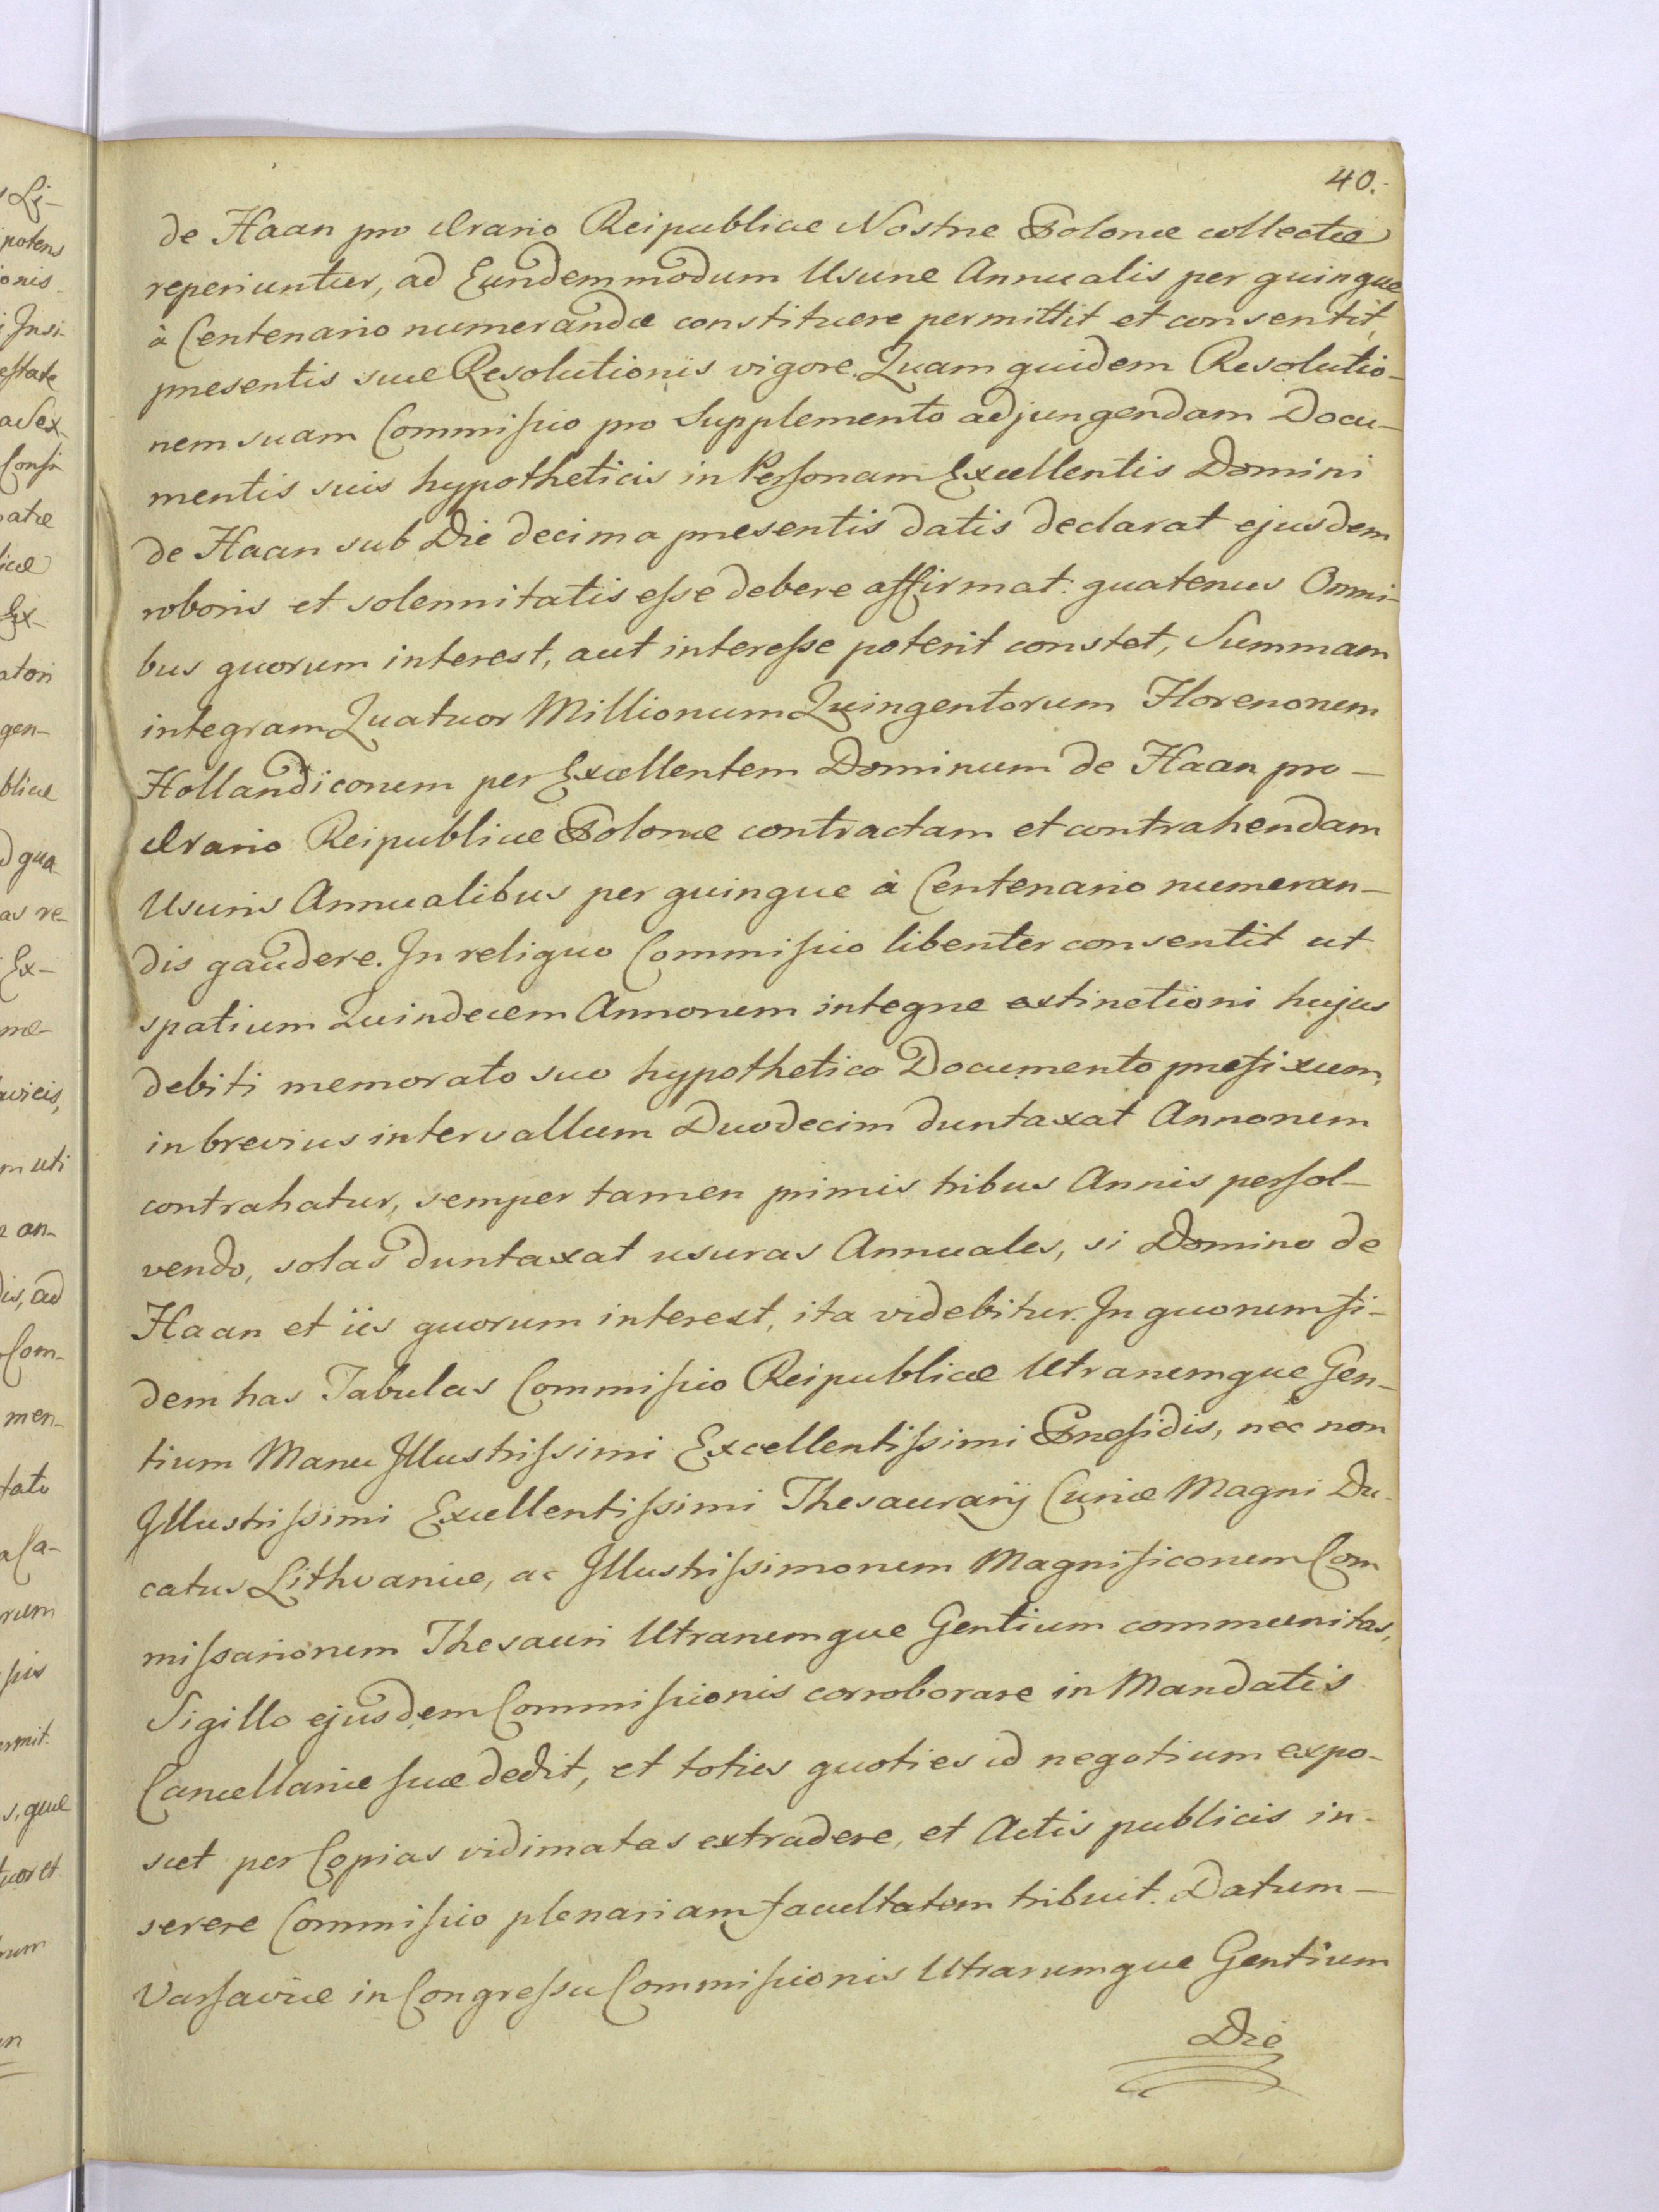 40.
de Haan pro Ærario Reipublicæ Nostræ Polonæ collectæ
reperiuntur, ad Eundem modum Usuræ Annualis per quinque
à Centenario numerandæ constituere permittit et consentit,
præsentis suæ Resolutionis vigore. Quam quidem Resolutio-
nem suam Commissio pro Supplemento adjungendam Docu-
mentis suis hypotheticis in Personam Excellentis Domini
de Haan sub Die decima præsentis datis declarat ejusdem
roboris et solennitatis esse debere affirmat: quatenus Omni-
bus quorum interest, aut interesse poterit constet, Summam
integram Quatuor Millionum Quingentorum Florenorum
Hollandicorum per Excellentem Dominum de Haan pro-
Ærario Reipublicæ Polonæ contractam et contrahendam
Usuris Annualibus per quinque à Centenario numeran-
dis gaudere. In reliquo Commissio libenter consentit ut
spatium Quindecem Annorum integræ extinctioni hujus
debiti memorato suo hypothetico Documento præfixum,
in brevius intervallum Duodecim duntaxat Annorum
contrahatur, semper tamen primis tribus Annis persol-
vendo, solas duntaxat usuras Annuales, si Domino de
Haan et iis quorum interest, ita videbitur. In quorum fi-
dem has Tabulas Commissio Reipublicæ Utrarumque Gen-
tium Manu Illustrissimi Excellentissimi Præsidis, nec non
Illustrissimi Excellentissimi Thesaurarij Curiæ Magni Du-
catus Lithvaniæ, ac Illustrissimorum Magnificorum Com
missariorum Thesauri Utrarumque Gentium communitas,
Sigillo ejusdem Commissionis corroborare in Mandatis
Cancellariæ suæ dedit, et toties quoties id negotium expo-
scet per Copias vidimatas extradere, et Actis publicis in-
serere Commissio plenariam facultatem tribuit. Datum-
Varsaviæ in Congressu Commissionis Utrarumque Gentium
Die